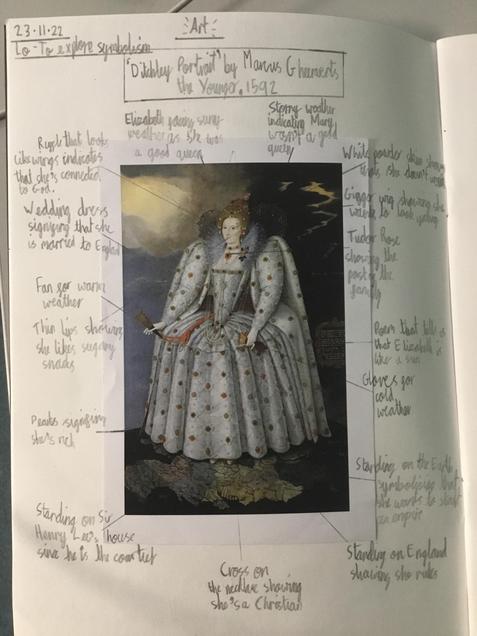 23.11.22
Art
LO - To explore symbolism
'Ditchley Portrait' by Marcus Gheeraerts
the Younger, 1592
Elizabeth facing sunny
weather as she was
a good queen
Stormy weather
indicating Mary
wasn't a good
queen
Ruff that looks
like wings indicates
that she's connected
to God.
Wedding dress
signifying that she
is married to England
Fan for warm
weather
Thin lips showing
she likes sugary
snacks
Pearls signifying
she's rich
Standing on Sir
Henry Lee's house
since he is the
White powder skin showing
that she doesn't
Ginger wig showing she
wants to look young
Tudor Rose
showing the
past of the
family
Poem that tells us
that Elizabeth is
like a sun
Gloves for
cold
weather
Standing on the Earth
symbolising that
she wants to start
an empire
Standing on England
showing she rules
Cross on
the necklace showing
she's a Christian